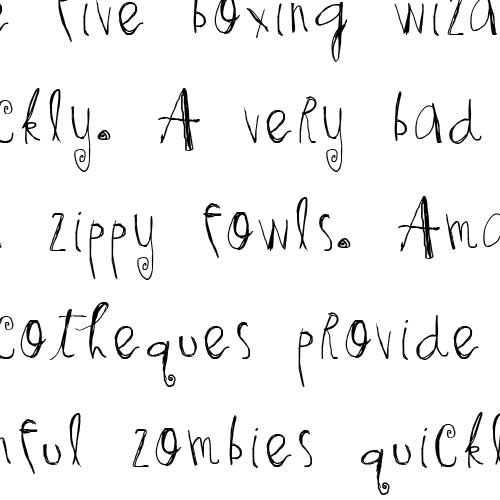 e five boxing wiza
ckly. A very bad
zippy fowls. Ama
cotheques provide
nful zombies quickl